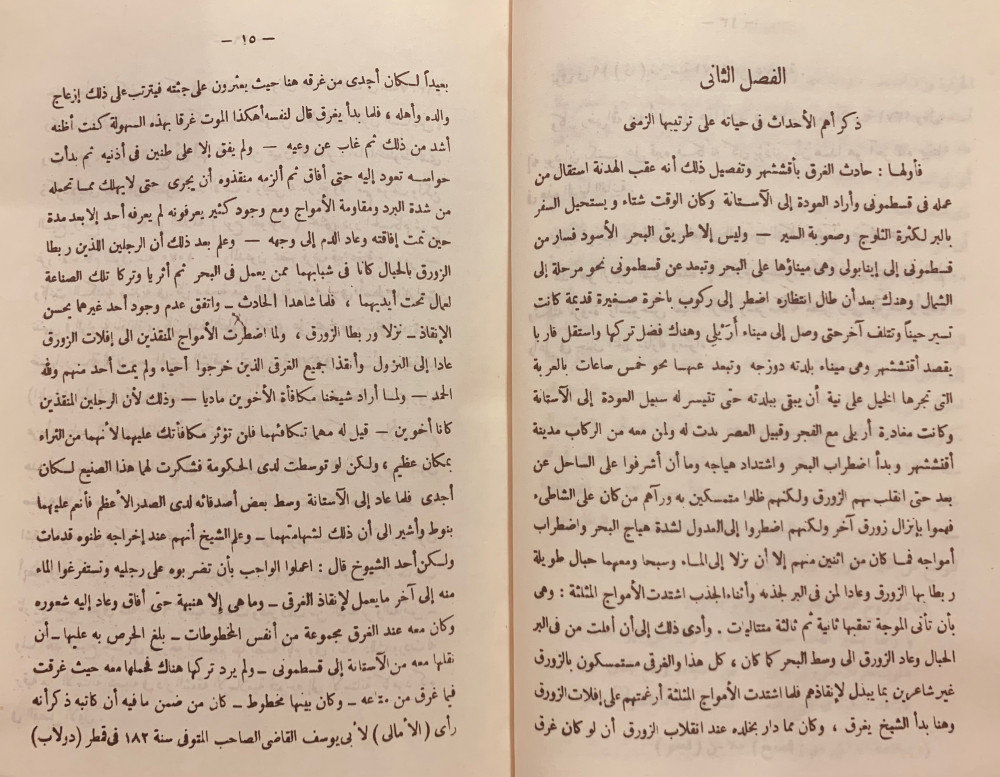 الفصل الثانى
ذكر أهم الأحداث فى حياته على ترتيبها الزمنى
فأولها : حادث الغرق بأقتششهر وتفصيل ذلك أنه عقب الهدنة استقال من
عمله فى قسطمونى وأراد العودة إلى الآستانة وكان الوقت شتاء ويستحيل السفر
بالبر لكثرة الثلوج وصعوبة السير — وليس إلا طريق البحر الأسود فسار من
قسطمونى إلى إينابولى وهى ميناؤها على البحر وتبعد عن قسطمونى نحو مرحلة إلى
الشمال وهنك بعد أن طال انتظاره اضطر إلى ركوب باخرة صغيرة قديمة كانت
تسير حيناً وتتلف آخر حتى وصل إلى ميناء أرَيلى وهناك فضل تركها واستقل قاربا
يقصد أقتششهر وهى ميناء بلدته دوزجه وتبعد عنها نحو خمس ساعات بالعربة
التى تجرها الخيل على نية أن يبقى ببلدته حتى تتيسر له سبيل العودة إلى الآستانة
وكانت مغادرة أريلى مع الفجر وقبيل العصر بدت له ولمن معه من الركاب مدينة
أقتششهر وبدأ اضطراب البحر واشتداد هياجه وما أن أشرفوا على الساحل عن
بعد حتى انقلب بهم الزورق ولكنهم ظلوا متمسكين به ورآهم من كان على الشاطىء
فهموا بإنزال زورق آخر ولكنهم اضطروا إلى العدول لشدة هياج البحر واضطراب
أمواجه فما كان من اثنين منهم إلا أن نزلا إلى الماء وسبحا ومعهما حبال طويلة
ربطا بها الزورق وعادا لمن فى البر لجذبه وأثناء الجذب اشتدت الأمواج المثلثة : وهى
بأن تأتى الموجة تعقبها ثانية ثم ثالثة متتاليات . وأدى ذلك إلى أن أفلت من فى البر
الحبال وعاد الزورق الى وسط البحر كما كان ، كل هذا والغرقى مستمسكون بالزورق
غير شاعرين بما يبذل لإنقاذهم فلما اشتدت الأمواج المثلثة أرغمتهم على إفلات الزورق
وهنا بدأ الشيخ يغرق ، وكان مما دار بخلده عند انقلاب الزورق أن لو كان غرق
— ١٥ —
بعيداً لكان أجدى من غرقه هنا حيث يعثرون على جثته فيترتب على ذلك إزعاج
والده وأهله ، فلما بدأ يغرق قال لنفسه أهكذا الموت غرقا بهذه السهولة كنت أظنه
أشد من ذلك ثم غاب عن وعيه — ولم يفق إلا على طنين فى أذنيه ثم بدأت
حواسه تعود إليه حتى أفاق ثم ألزمه منقذوه أن يجرى حتى لا يهلك مما تحمله
من شدة البرد ومقاومة الأمواج ومع وجود كثير يعرفونه لم يعرفه أحد إلا بعد مدة
حين تمت إفاقته وعاد الدم إلى وجهه — وعلم بعد ذلك أن الرجلين اللذين ربطا
الزورق بالحبال كانا فى شبابهما ممن يعمل فى البحر ثم أثريا وتركا تلك الصناعة
لعمال تحت أيديهما ، فلما شاهدا الحادث — واتفق عدم وجود أحد غيرهما يحسن
الإنقاذ — نزلا وربطا الزورق ، ولما اضطرت الأمواج المنقذين الى إفلات الزورق
عادا إلى النزول وأنقذا جميع الغرقى الذين خرجوا أحياء ولم يمت أحد منهم ولله
الحمد — ولما أراد شيخنا مكافأة الأخوين ماديا — وذلك لأن الرجلين المنقذين
كانا أخوين — قيل له مهما تكافئهما فلن تؤثر مكافأتك عليهما لأنهما من الثراء
بمكان عظيم ، ولكن لو توسطت لدى الحكومة فشكرت لهما هذا الصنيع لكان
أجدى فلما عاد إلى الآستانة وسط بعض أصدقائه لدى الصدر الأعظم فأنعم عليهما
بنوط وأشير الى أن ذلك لشهامتهما — وعلم الشيخ أنهم عند إخراجه ظنوه قد مات
ولكن أحد الشيوخ قال : اعملوا الواجب بأن تضربوه على رجليه وتستفرغوا الماء
منه إلى آخر ما يعمل لإنقاذ الغرقى — وما هى إلا هنيهة حتى أفاق وعاد إليه شعوره
وكان معه عند الغرق مجموعة من أنفس المخطوطات — بلغ الحرص به عليها — أن
نقلها معه من الآستانة إلى قسطمونى — ولم يرد تركها هناك فحملها معه حيث غرقت
فيما غرق من متاعه — وكان بينها مخطوط — كان من ضمن ما فيه أن كاتبه ذكر أنه
رأى ( الأمالى ) لأبى يوسف القاضى الصاحب المتوفى سنة ١٨٢ فى قمطر ( دولاب )